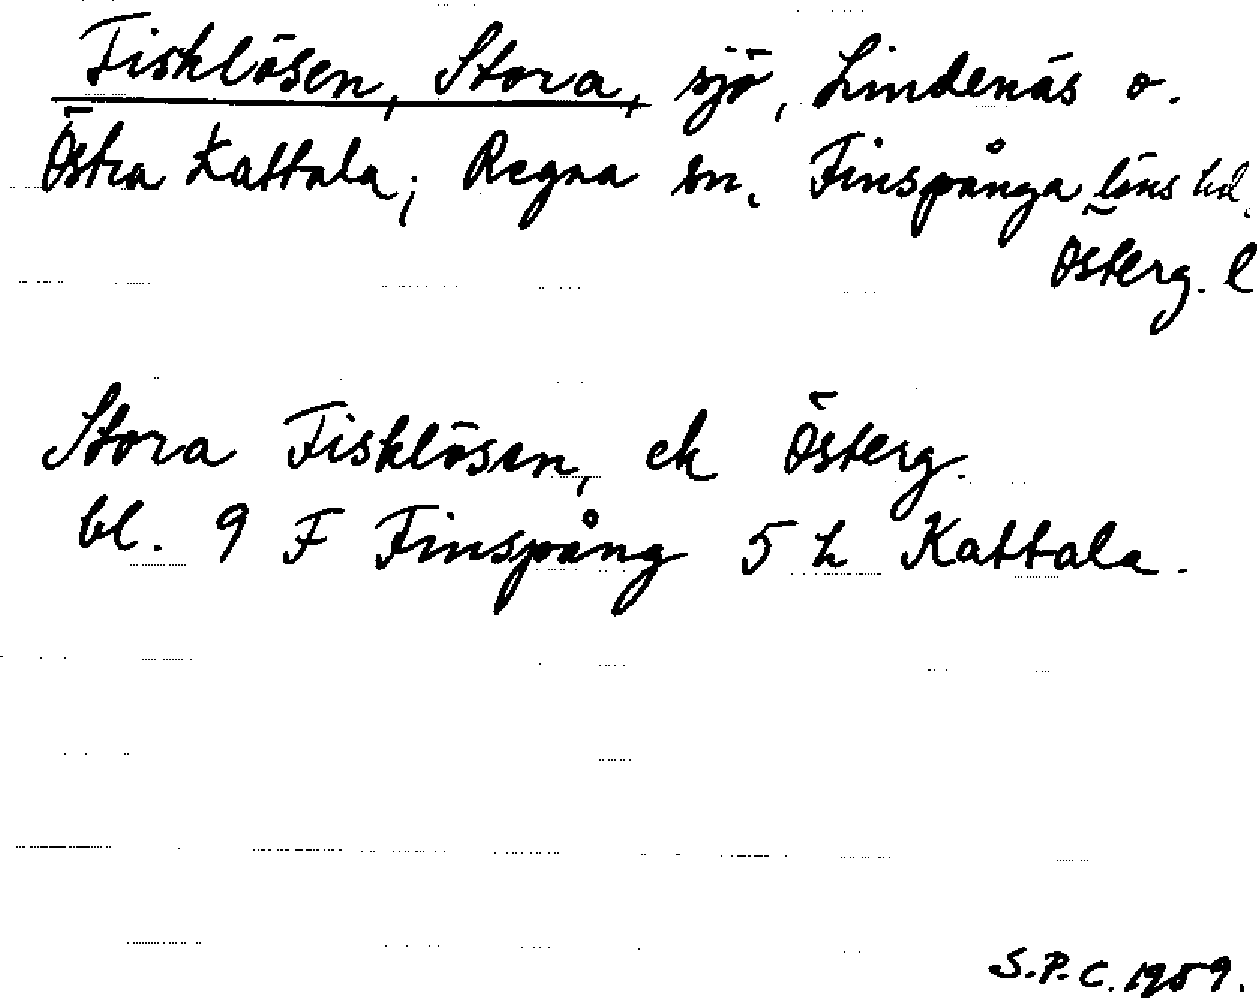 Fisklösen, Stora, sjö, Lindenäs o.
Östra Kattala; Regna sn. Finspånga läns hd.
Österg. l
Stora Fisklösen, ek Österg.
bl. 9 F Finspång 5 h Kattala.
S.P.C. 1959.